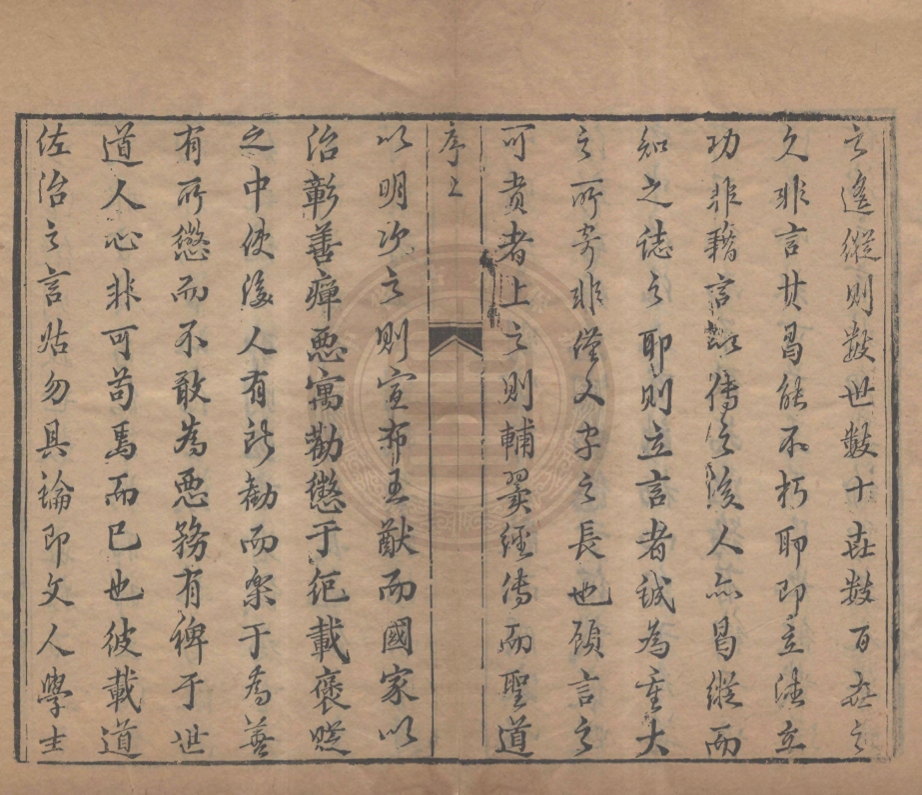 之遙縱則數世數十世數百世之
久非言其曷能不朽耶即立德立
功非藉言以傳之後人亦曷縱而
知之誌之耶則立言者誠為重大
之所寄非僅文字之長也顧言之
可貴者上之則輔翼經傳而聖道
序二
以明次之則宣布王猷而國家以
治彰善癉惡寓勸懲于紀載褒貶
之中使後人有所勸而樂于為善
有所懲而不敢為惡務有裨于世
道人心非可苟焉而已也彼載道
佐治之言姑勿具論即文人學士